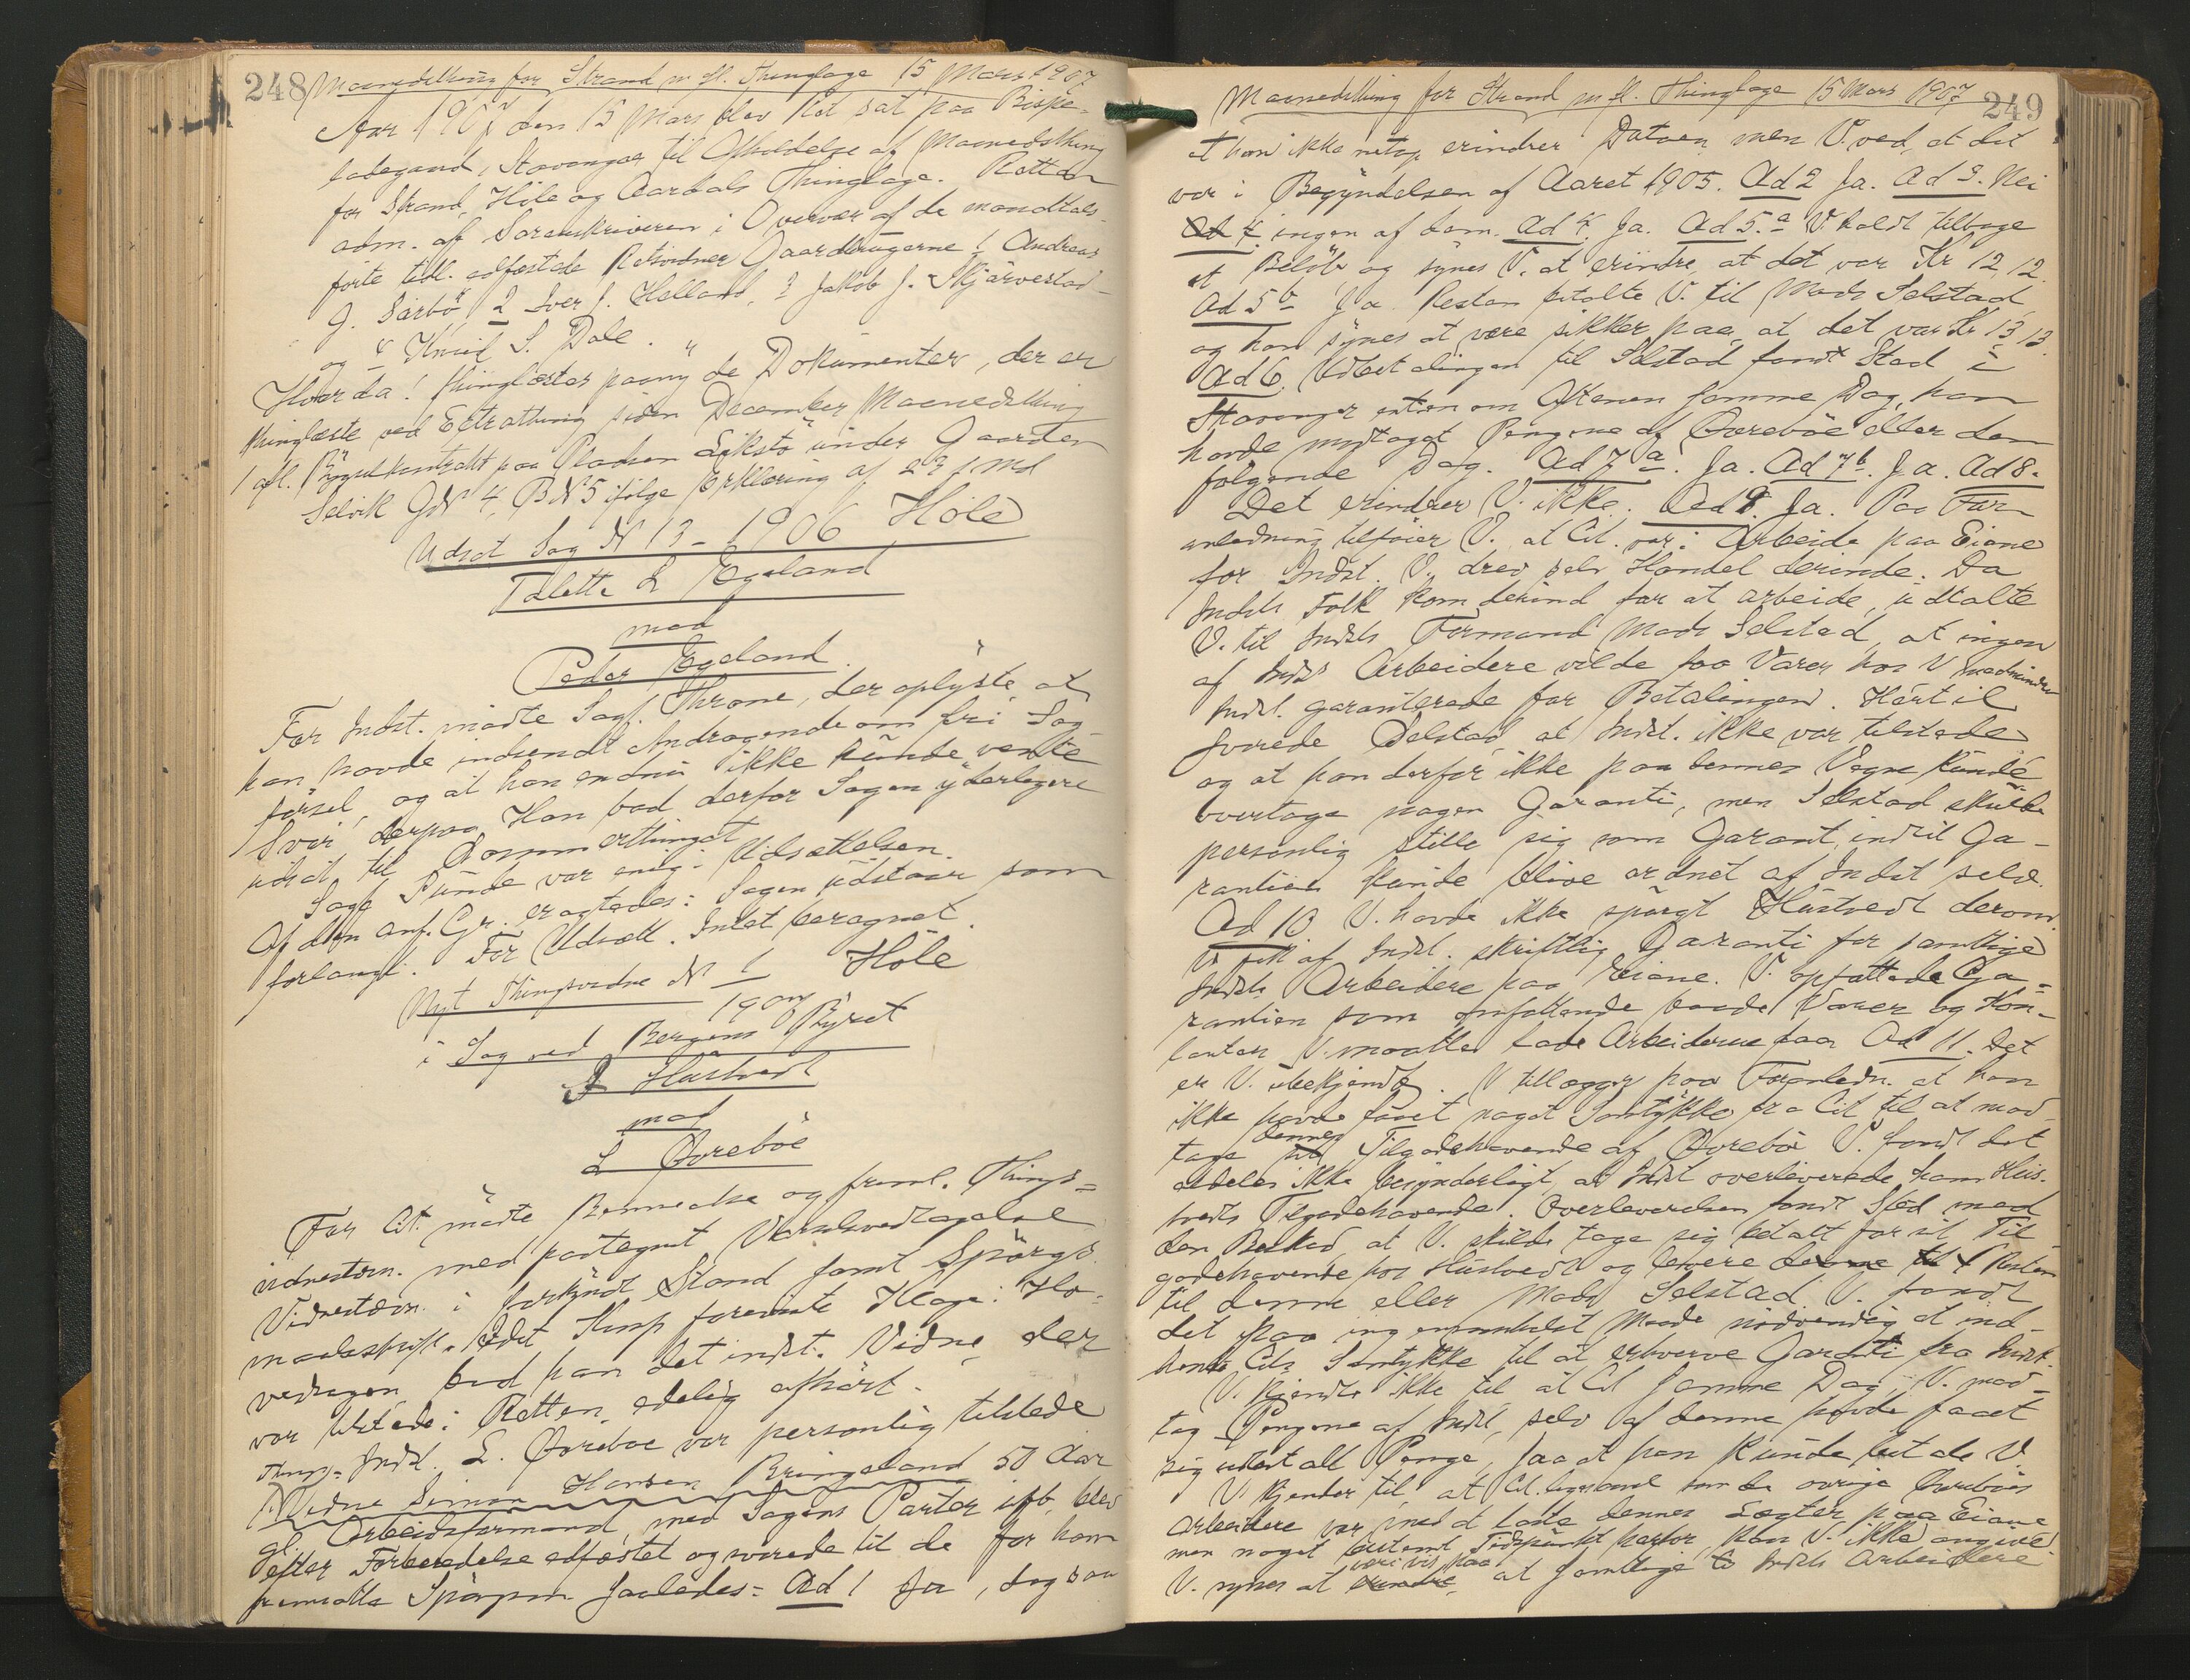 248 Maanedsthing for Strand m fl. Thinglage 15 Mars 1907
Aar 1907 den 15 Mars blev Ret sat paa Bispe-
ladegaard, Stavanger til Afholdelse af Maanedsthing
for Strand, Höle og Aardals Thinglage. Retten
adm. af Sorenskriveren i Overvær af de mandtals-
förte tidl. edfæstede Retsvidner Gaardbrugerne 1 Andreas
G. Barbö, 2 Iver J. Helland, 3 Jakob J. Skjärvestad
og 4 Knud S. Dale.
Hvorda! thinglæstes paany de Dokumenter, der er
thinglæste ved Extrathing siden December Maanedsthing
1 afl. Bygselkontrakt paa Pladsen Lekstö under Gaarden
Selvik GN 4, BN 5 ifölge Erklæring af 23 f Md
Udsat Sag N 13 - 1906 Höle
Tolette L Egeland
mod
Peder Egeland
For Indst. mödte Sagf. Throne, der oplyste, at
han havde indsendt Andragende om fri Sag-
försel, og at han endnu ikke kunde vente
Svar derpaa. Han bad derfor Sagen yderligere
udsat til Sommerthinget
Sagf Sunde var enig i Udsættelsen.
Af den anf. Gr. eragtedes: Sagen udstaar som
forlangt. For Udsætt. Intet beregnet.
Nyt Thingsvidne N 1 Höle
1907
i Sag ved Bergens Byret
Hustvedt
mod
L Övreböe
For Cit. mödte Bennetche og freml. Things-
vidnestævn. med paategnet Varselsvedtagelse
Vidnestævn. i forkyndt Stand samt Spörgs-
maalsskrift. Idet Kmp foreviste Klage: Ho-
vedsagen, bad han det indst. Vidne, der
var tilstede i Retten, edelig afhört.
Kmp= Indst. L. Övreböe var personlig tilstede
1) Vidne Simon Hansen Bringeland 50 Aar
gl. Arbeidsformand, med Sagens Parter ub., blev
efter Forberedelse edfæstet og svarede til de for ham
fremsatte Spörgsm. saaledes= Ad 1 Ja, dog saa
Maanedsthing for Strand m fl. Thinglage 15 Mars 1907 249
at han ikke netop erindrer Datoen, men V. ved, at det
var i Begyndelsen af Aaret 1905. Ad 2 Ja. Ad 3. Nei
ingen af dem. Ad 4. Ja. Ad 5.a V holdt tilbage
et Belöb og synes V. at erindre, at det var Kr 12,12.
Ad 5b Ja. Resten betalte V. til Mads Selstad,
og han synes at være sikker paa, at det var Kr 13,13.
Ad 6. Udbetalingen til Selstad fandt Sted i
Stavanger enten om Aftenen samme Dag, han
havde modtaget Pengene af Övreböe eller den
fölgende Dag. Ad 7a. Ja. Ad 7b. Ja. Ad 8.
Det erindrer V. ikke. Ad 9. Ja. Paa For-
anledning tilföier V. at Cit. var i Arbeide paa Eiane
for Indst. V. drev selv Handel derinde. Da
Indsts Folk kom derind for at arbeide, udtalte
V. til Indsts Formand Mads Selstad, at ingen
af Indsts Arbeidere vilde faa Varer hos V medmindre
Indst. garanterede for Betalingen. Hertil
svarede Selstad, at Indst. ikke var tilstede
og at han derfor ikke paa dennes Vegne kunde
overtage nogen Garanti, men Selstad skulde
personlig stille sig som Garant, indtil Ga-
rantien kunde blive ordnet af Indst selv.
Ad 10 V. havde ikke spörgt Hustvedt derom.
V fik af Indst. skriftlig Garanti for samtlige
Indsts Arbeidere paa Eiane. V. opfattede Ga-
rantien som omfattende baade Varer og Kon-
tanter V. maatte lade Arbeiderne faa. Ad 11. Det
er V. ubekjendt. V tillægger paa Foranledn. at han
ikke havde faaet noget Samtykke fra Cit til at mod-
tage dennes Tilgodehavende af Övreböe V. fandt det
aldeles ikke besynderligt, at Indst overleverede ham Hus-
tvedts Tilgodehavende. Overleverelsen fandt Sted med
den Besked, at V. skulde tage sig betalt for sit Til-
godehavende hos Hustvedt og levere denne Resten
til denne eller Mads Selstad V. fandt
det paa ingensomhelst Maade nödvendig at ind-
hente Cits Samtykke til at erhverve Garanti fra Indst.
V. kjendte ikke til at Cit samme Dag, V. mod-
tog Pengene af Indst, selv af denne havde faaet
sig udbetalt Penge, saa at han kunde betale V.
V. kjender til, at Cit. ligesaavel som de övrige Övreböes
Arbeidere var med at laste dennes Lægter paa Eiane
men noget bestemt Tidspunkt herfor, kan V. ikke angive.
V. synes at være vis paa, at samtlige Indsts Arbeidere